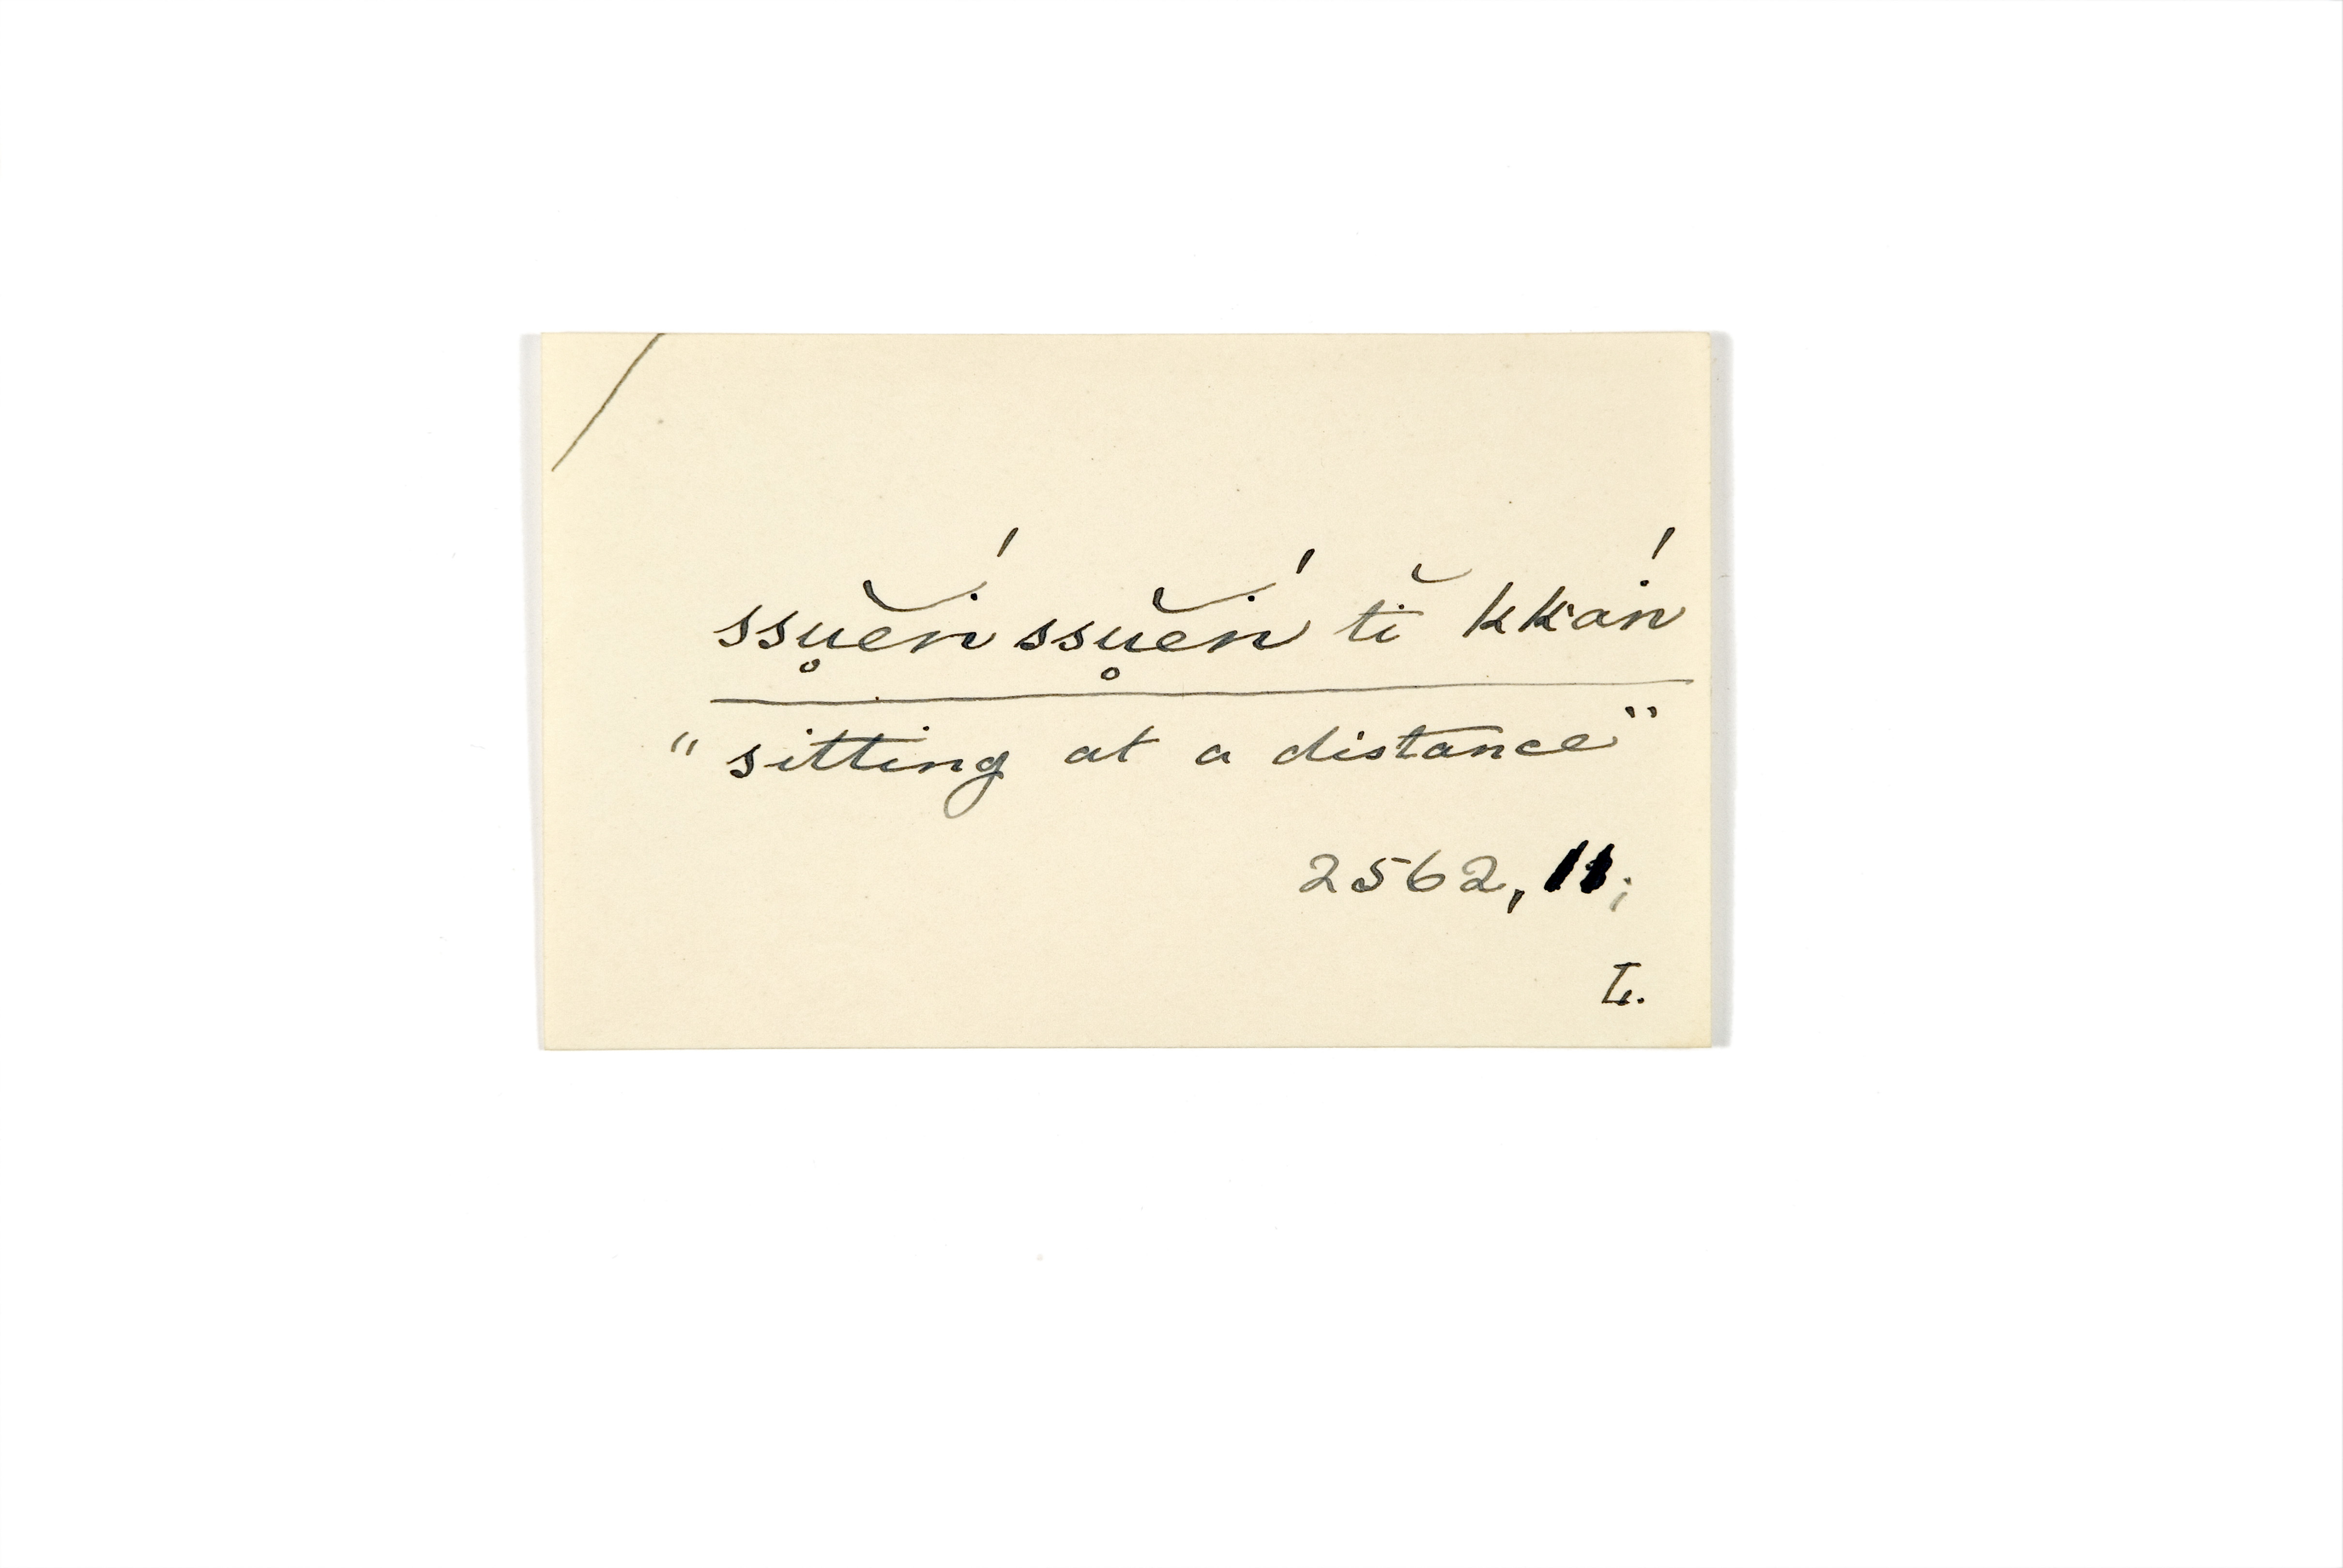 ssu̥ĕṅ́ ssu̥ĕṅ́ tĭ kkaṅ́
"sitting at a distance"
2562, 11;
L.